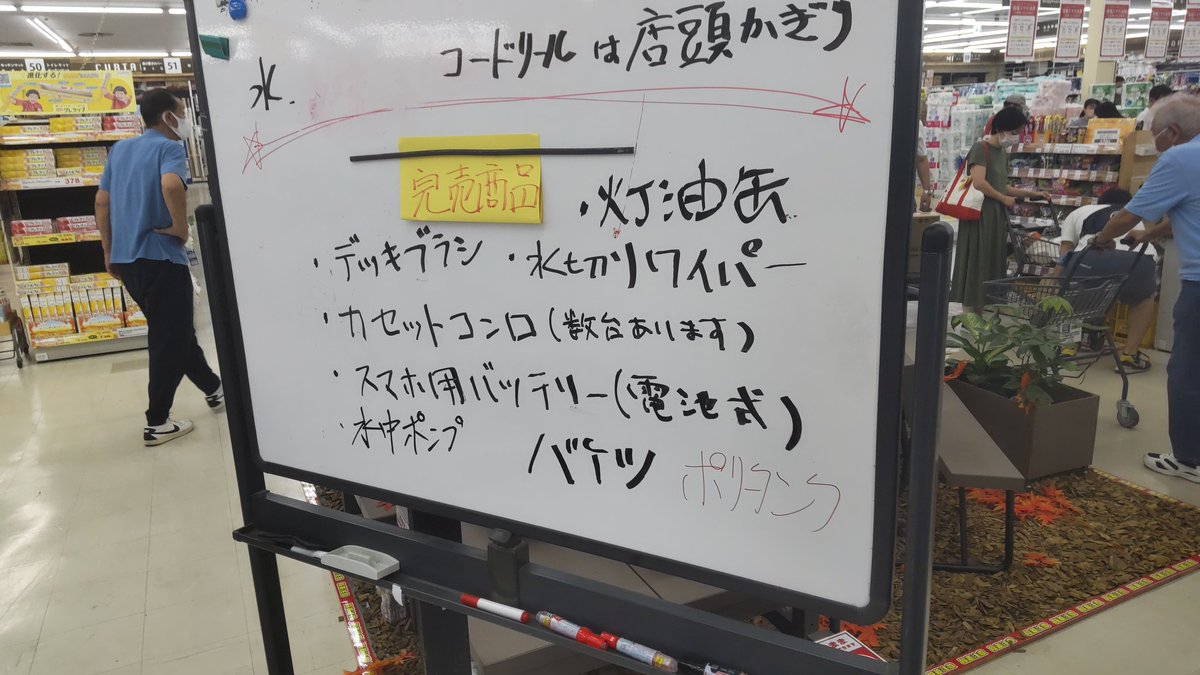 コードリールは店頭かぎり
水.
完売商品
・灯油缶
・デッキブラシ ・水切りワイパー
・カセットコンロ(数台あります)
・スマホ用バッテリー(電池式)
・水中ポンプ
バケツ ポリータンク
50
51
進化する!
378